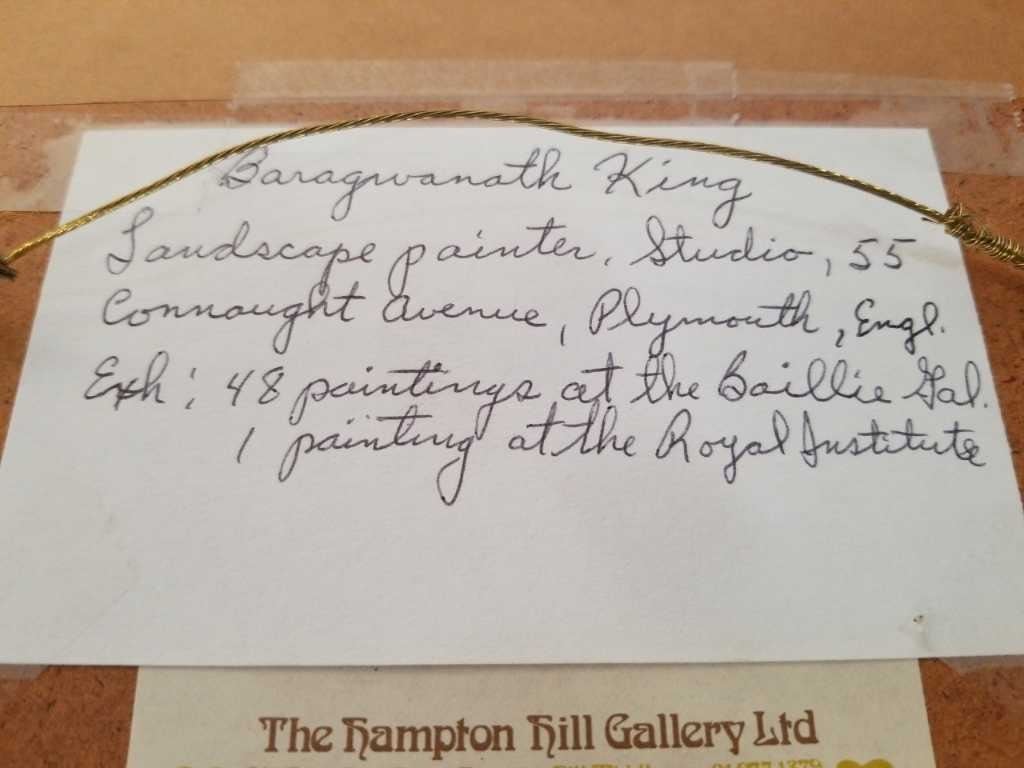 Baragwanath King
Landscape painter, Studio, 55
Connaught Avenue, Plymouth, Engl.
Exh: 48 paintings at the Baillie Gal.
1 painting at the Royal Institute
The Hampton Hill Gallery Ltd